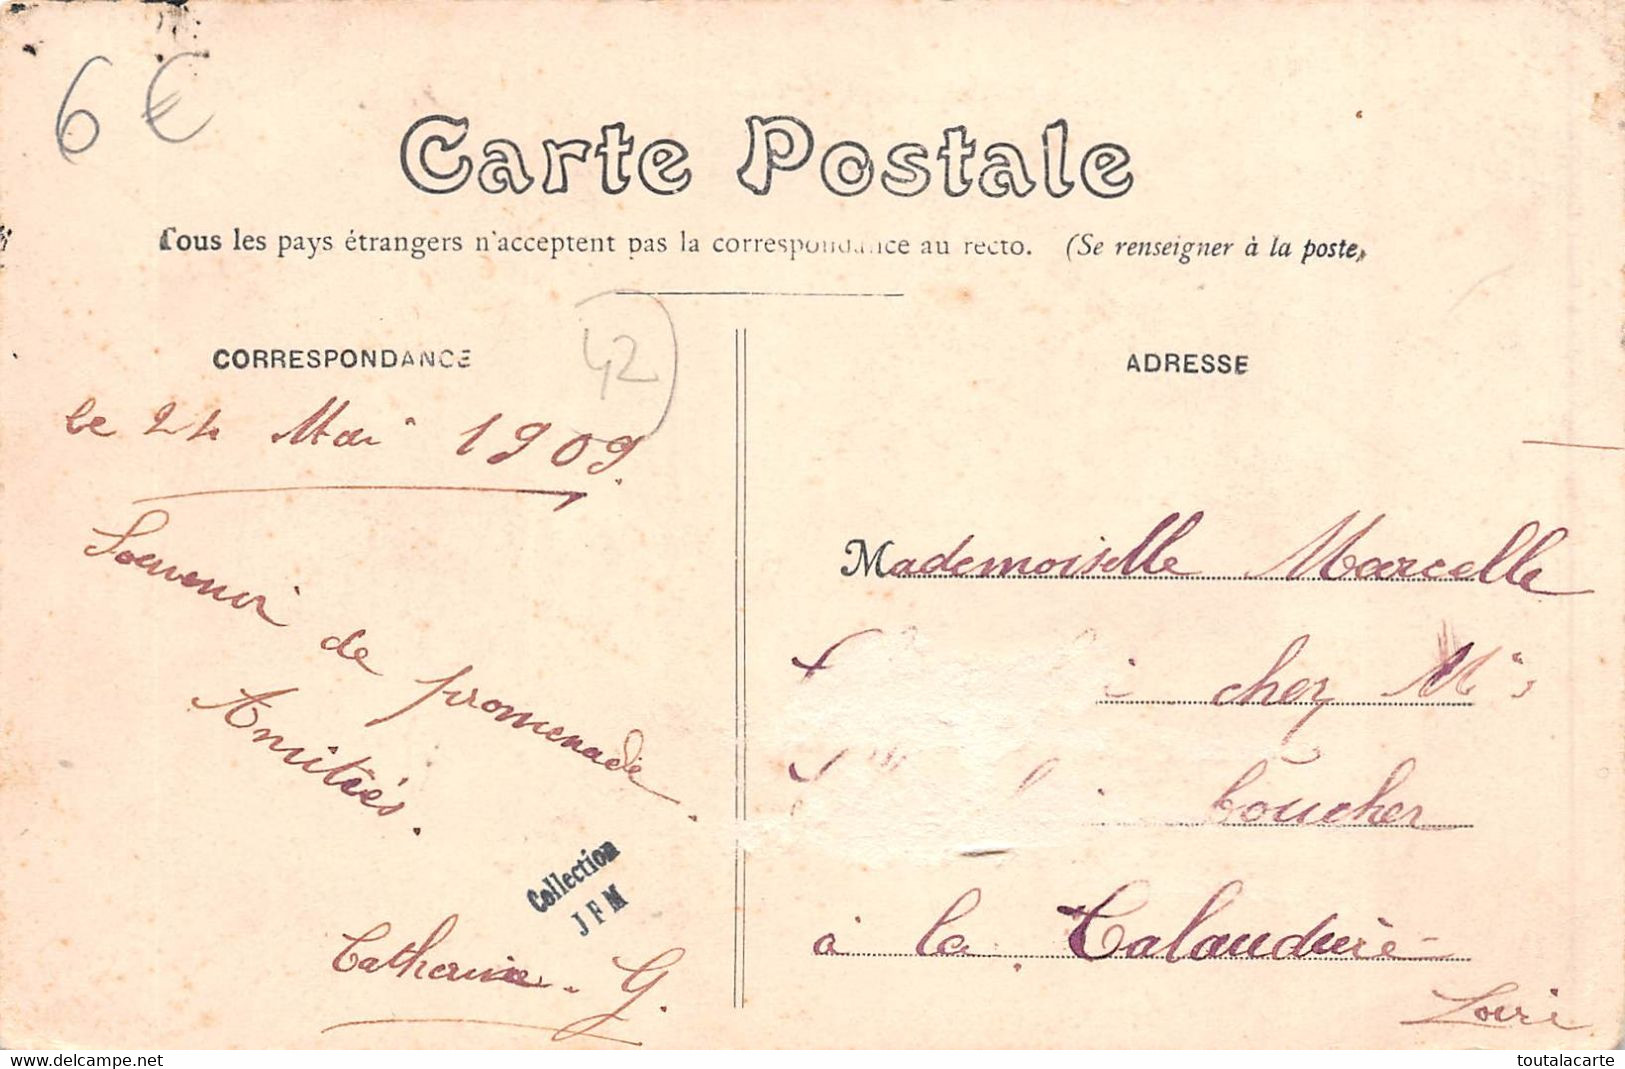 6 €
Carte Postale
Tous les pays étrangers n'acceptent pas la correspondance au recto. (Se renseigner à la poste)
CORRESPONDANCE
42
ADRESSE
le 24 Mai 1909.
Souvenir de promenade.
Amitiés.
Catherine. G.
Collection
J F M
Mademoiselle Marcelle
chez Mrs
boucher
à la Talaudière
Loire
delcampe.net
toutalacarte